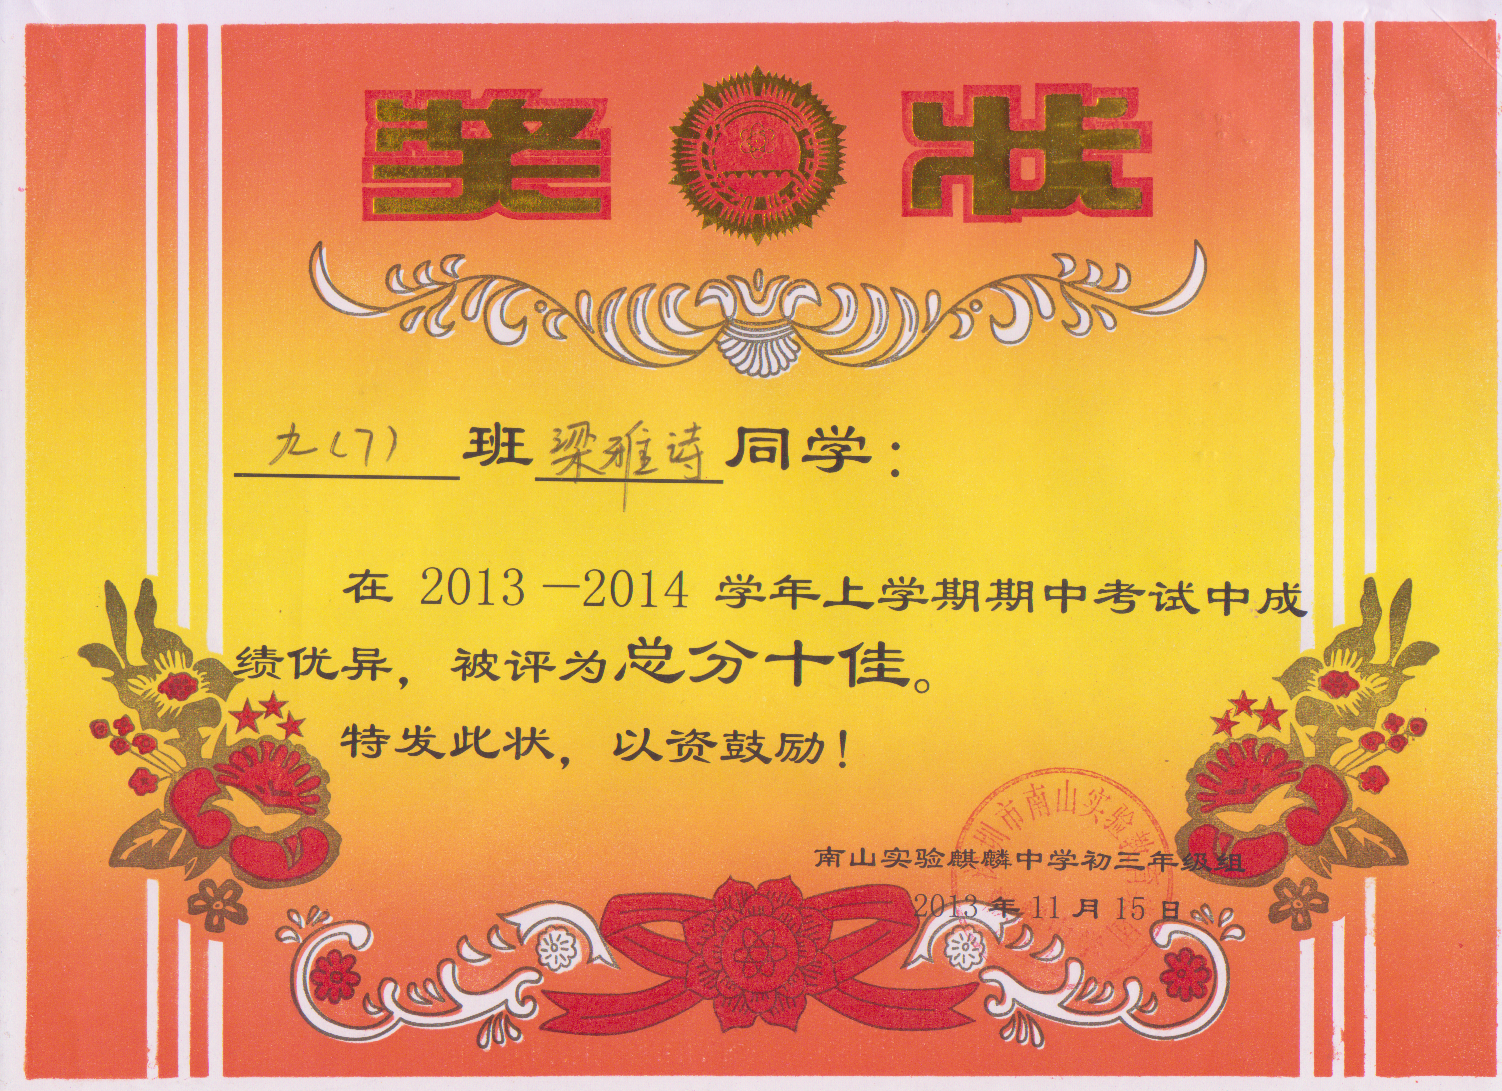 奖状
九(7)班梁雅诗同学：
在 2013－2014 学年上学期期中考试中成
绩优异，被评为总分十佳。
特发此状，以资鼓励！
南山实验麒麟中学初三年级组
2013 年 11 月 15 日
圳市南山实验教育